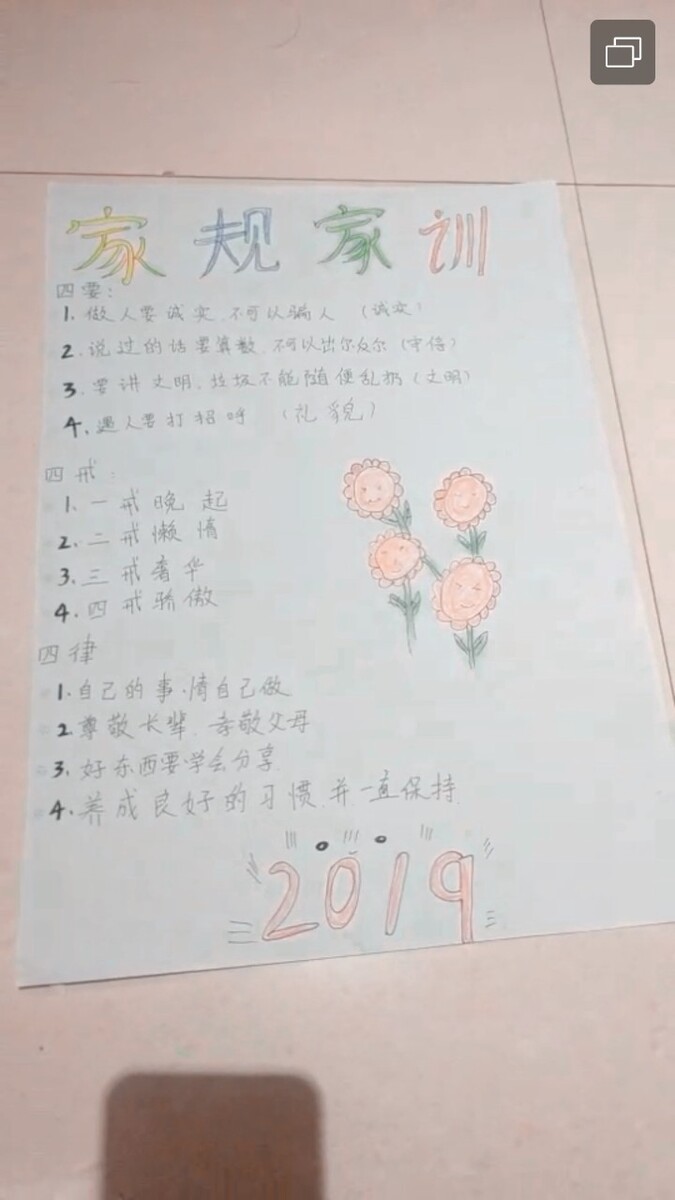 家规家训
四要:
1. 做人要诚实.不可以骗人 (诚实)
2. 说过的话要算数.不可以出尔反尔 (守信)
3. 要讲文明、垃圾不能随便乱扔 (文明)
4. 遇人要打招呼 (礼貌)
四戒:
1. 一戒晚起
2. 二戒懒惰
3. 三戒奢华
4. 四戒骄傲
四律
1. 自己的事情自己做
2. 尊敬长辈.孝敬父母
3. 好东西要学会分享.
4. 养成良好的习惯.并一直保持.
2019